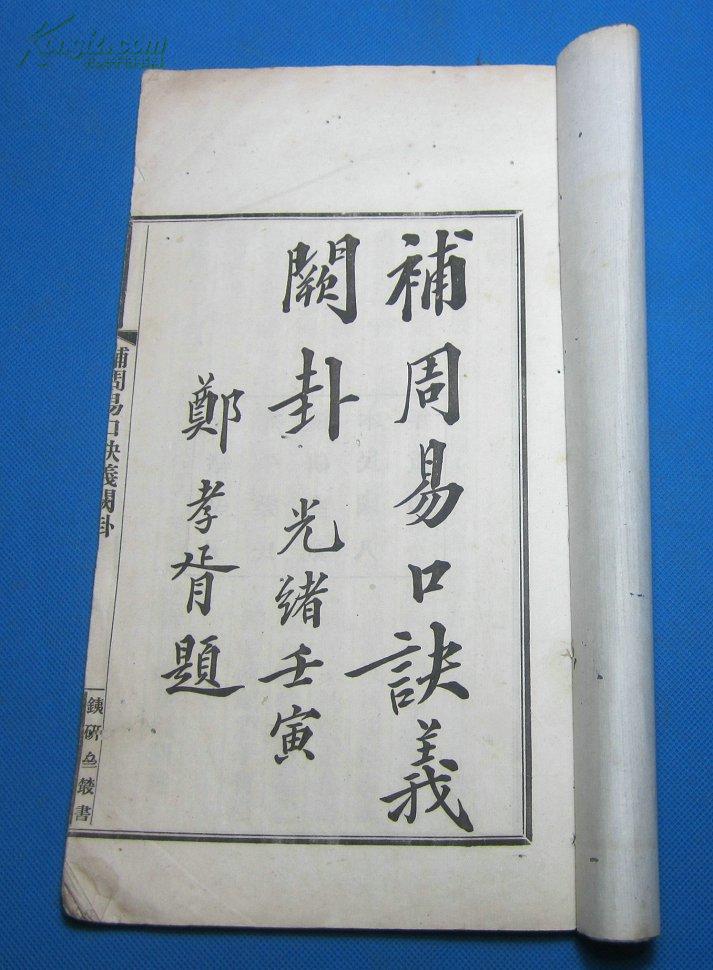 補周易口訣義
闕卦 光緒壬寅
鄭孝胥題
補周易口訣義闕卦
鐵研叢書
Kongfz.com